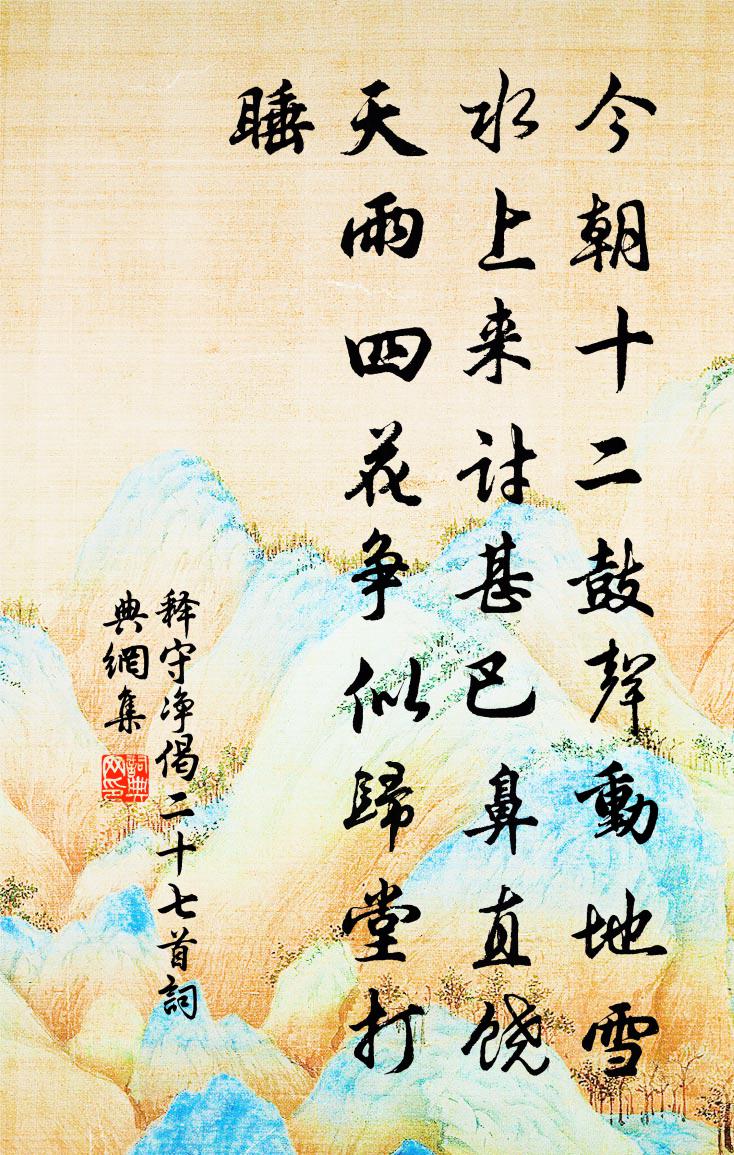 今朝十二鼓聲動地雪
水上来討甚巴鼻直饶
天雨四花争似歸堂打
睡
释守净偈二十七首詞
典網集
詞典
网印